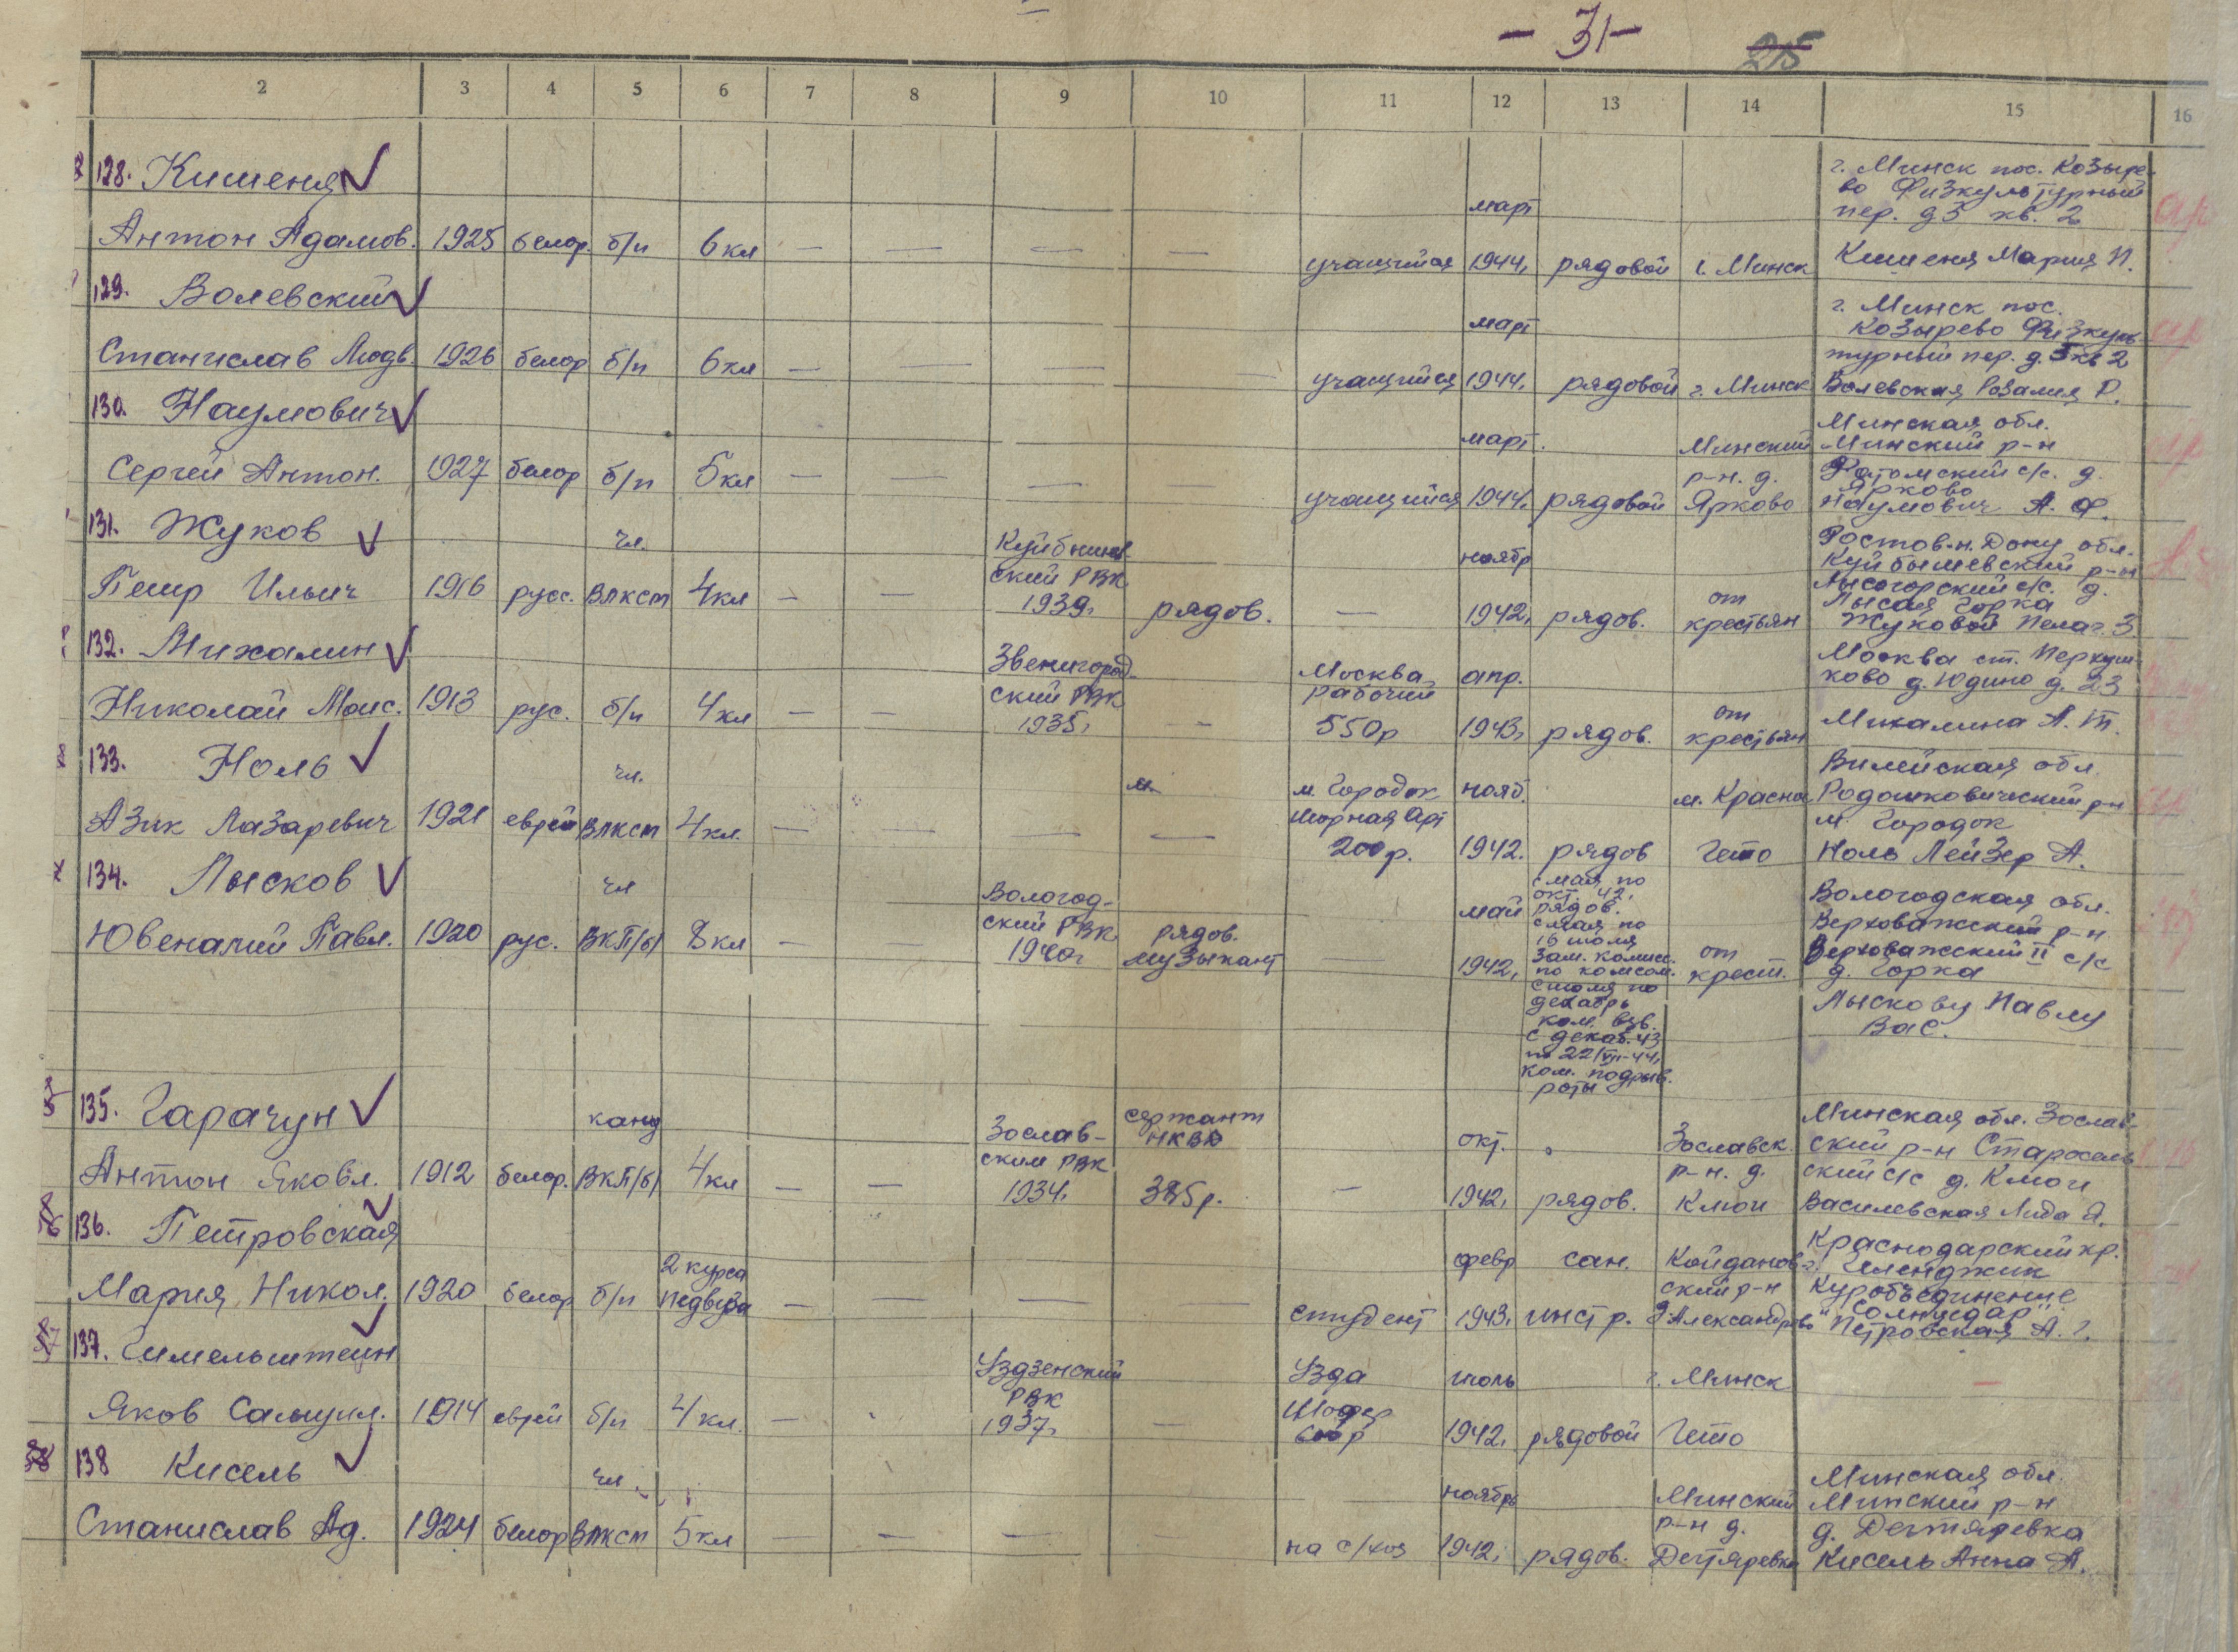 - 31 -
215
2 3 4 5 6 7 8 9 10 11 12 13 14 15 16
128. Кишеня
г. Минск пос. Козыре-
во Физкультурный
пер. д 5 кв. 2
март
Антон Адамов. 1925 белор. б/п 6 кл — — — — учащийся 1944, рядовой г. Минск Кишеня Мария И.
129. Волевский
г. Минск пос.
март
Козырево Физкуль-
турный пер. д. 5 кв 2
Станислав Людв. 1926 белор б/п 6 кл — — — — учащийся 1944, рядовой г. Минск Волевская Розалия Р.
130. Наумович
Минская обл.
март. Минский Минский р-н
р-н. д. Ратомский с/с. д.
Ярково
Сергей Антон. 1927 белор б/п 5 кл — — — — учащийся 1944, рядовой Ярково Наумович А. Ф.
131. Жуков
чл. Куйбышев ноябр Ростов-н. Дону обл.
Куйбышевский р-н
ский РВК Лысогорский с/с. д.
от Лысая Горка
Петр Ильич 1916 русс. ВЛКСМ 4 кл — — 1939, рядов. — 1942, рядов. крестьян Жуковой Пелаг. З
132. Михалин
Звенигород- Москва апр. Москва ст. Перхуш-
ский РВК рабочий ково д. Юдино д. 23
от
Николай Моис. 1913 рус. б/п 4 кл — — 1935, — 550 р 1943, рядов. крестьян Михалина А. Т.
133. Ноль
чл. м. м. Городок нояб. м. Красна Вилейская обл
Родошковический р-н
м. Городок
Азик Лазаревич 1921 еврей ВЛКСМ 4 кл. — — — — 200 р. 1942. рядов Гето Ноль Лейзер А.
134. Лысков
чл Вологод- май с мая по
окт. 42,
рядов. Вологодская обл.
ский РВК рядов. с мая по Верховажский р-н
16 июля
от Верховажский II с/с
Ювеналий Павл. 1920 рус. ВКП/б/ 8 кл — 1940г музыкант — 1942, зам. комис.
по комсом. крест. д. Горка
с июля по
декабрь Лыскову Павлу
ком. взв. Вас.
с декаб. 43
по 22/VII-44,
ком. подрыв.
роты
135. Гарачун
канд Зослав- сержант
НКВД окт. Зославск Минская обл. Зослав-
ский р-н Старосель
ским РВК р-н. д. ский с/с д. Ключи
Антон Яковл. 1912 белор. ВКП/б/ 4 кл — — 1934, 385 р. — 1942, рядов. Ключи Василевская Лида Я.
136. Петровская
2 курса февр сан. Койданов- Краснодарский кр.
г. Геленджик
ский р-н Куробъединение
"Солнцедар"
Мария Никол. 1920 белор б/п педвуза — — — — студент 1943, инстр. д. Александрово Петровская А. Г.
137. Гимельштейн
Уздзенский Узда июль г. Минск —
РВК Шофер
Яков Самуил. 1914 еврей б/п 4 кл. — 1937, — 600 р 1942, рядовой Гето
138 Кисель
чл ноябрь Минский Минская обл.
Минский р-н
р-н д. д. Дегтяревка
Станислав Ад. 1924 белор ВЛКСМ 5 кл — — — — на с/хоз 1942, рядов. Дегтяревка Кисель Анна А.